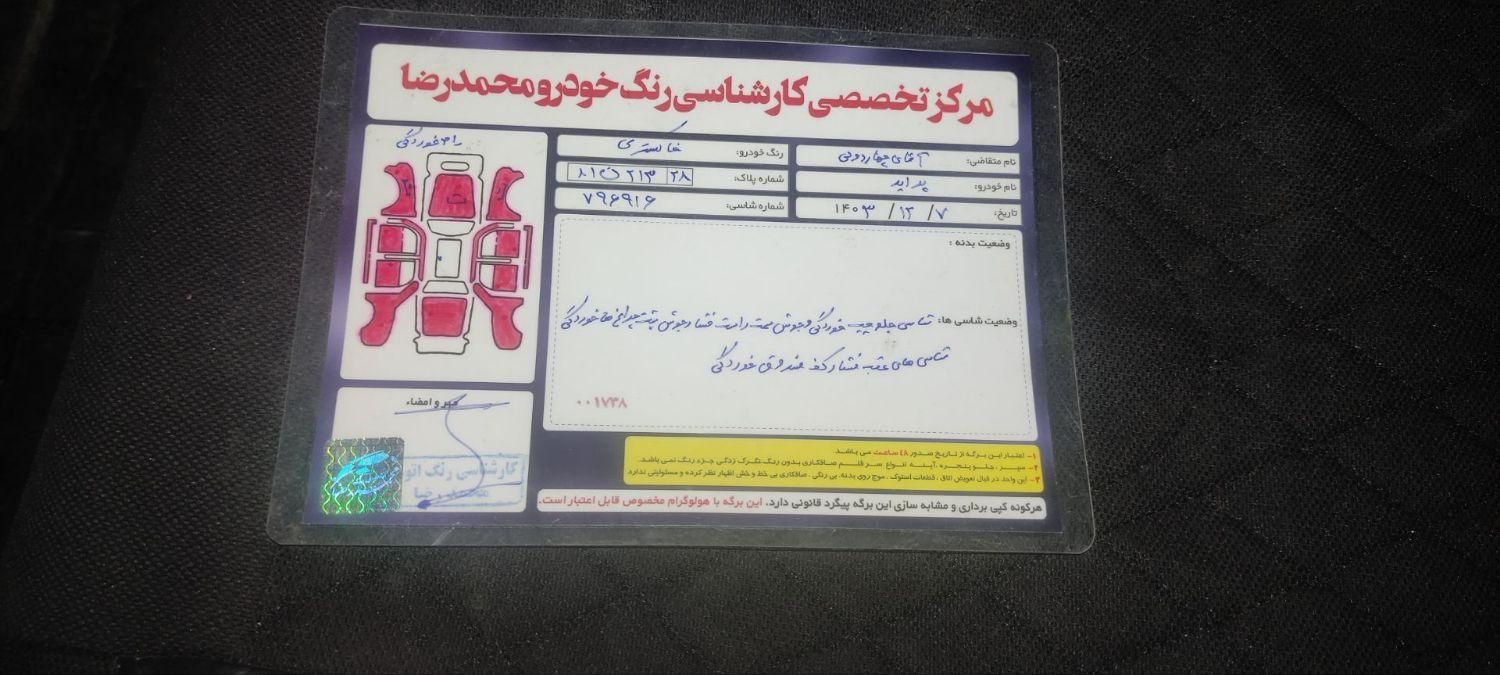 مرکز تخصصی کارشناسی رنگ خودرو محمدرضا
نام متقاضی: آقای چهاردولی
رنگ خودرو: خاکستری
نام خودرو: پراید
شماره پلاک: ۲۸ ۲۱۳ ن ۸۱
تاریخ: ۱۴۰۳ / ۱۲ / ۷
شماره شاسی: ۷۹۶۹۱۶
خوردگی
ت
وضعیت بدنه :
وضعیت شاسی ها: شاسی جلو چپ خوردگی و جوش سمت راست فشار و جوش پشت چراغ ها خوردگی
شاسی های عقب فشار کف صندوق خوردگی
۰۰۱۷۳۸
مهر و امضاء
کارشناسی رنگ اتو
محمدرضا
۱- اعتبار این برگه از تاریخ صدور ۴۸ ساعت می باشد.
۲- سپر ، جلو پنجره ، آینه انواع سر قلم صافکاری بدون رنگ تگرگ زدگی جزء رنگ نمی باشد.
۳- این واحد در قبال تعویض اتاق ، قطعات استوک ، موج روی بدنه، بی رنگی ، صافکاری بی خط و خش اظهار نظر نکرده و مسئولیتی ندارد
هرگونه کپی برداری و مشابه سازی این برگه پیگرد قانونی دارد. این برگه با هولوگرام مخصوص قابل اعتبار است.